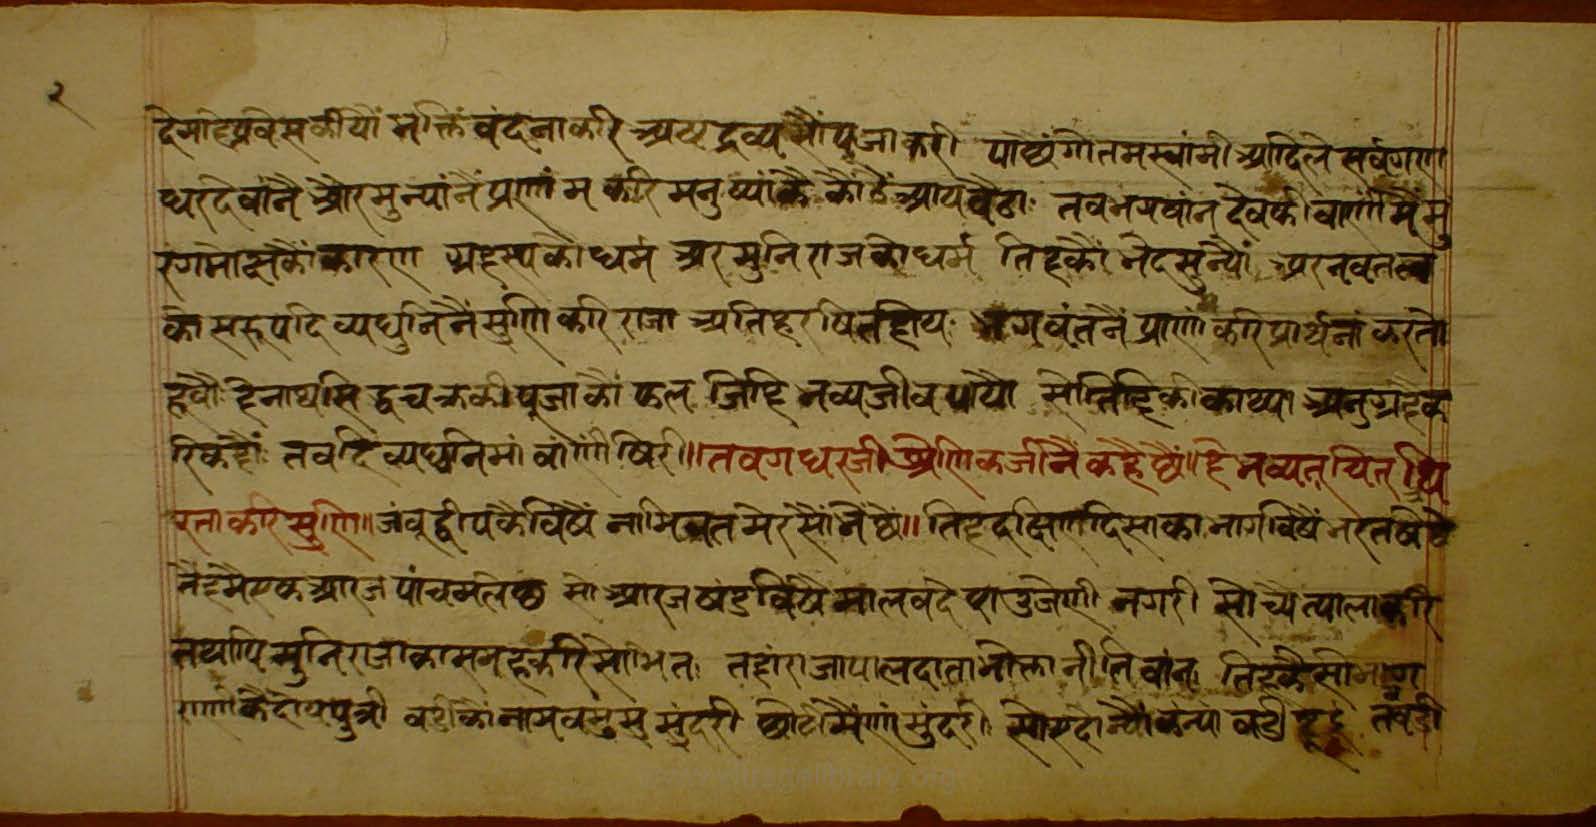 २
देमाहे प्रवेस कीयौं भक्ति वंदना करि अष्ट द्रव्य सौं पूजा करी पाछैं गोतमस्वांमी आदि ले सर्वगण
धरदेवांनै और मुन्यांनैं प्रणांम करि मनुष्यां कै कोठैं आय बैठाः तब भगवांन देवकी वाणी मैं सु
रग मोक्ष कौं कारण ग्रहस्थ को धर्म अर मुनिराज को धर्म तिहकौं भेद सुन्यौं अर नवतत्व
को सरूप दिव्यधुनि नैं सुणि करि राजा अति हरषित होयः भगवंतनैं प्रणांम करि प्रार्थनां करतो
हूवौः हे नाथ सिद्धचक्र की पूजा कौं फल जिहि भव्यजीव पायौ सो तिहि की कथा अनुग्रह क
रि कहौः तब दिव्यधुनि मां वांणी षिरी॥ तब गणधरजी श्रेणिकजीनैं कहै छै॥ हे भव्य तू चित् थि
रता करि सुणि॥ जंबूद्वीप कै विषैं नाभिवत मेर सोभै छै॥ तिह दक्षिण दिसा का भाग विषैं भरतषेत्र छै
तैहमै एक आरज पांच मलेछ सो आरज षंड विषै मालवदेश उजेणी नगरी सो चैत्याला करि
तथापि मुनिराजा का समूह करि सोभित. तहां राजा पाल दाता भोक्ता नीतिवांन. तिहकै सौभाग
राणी कै दोय पुत्री बडी को नाम सुरसुंदरी छोटी मैंणांसुंदरी. सो ए दोन्यौं कन्या बडी हूई तब